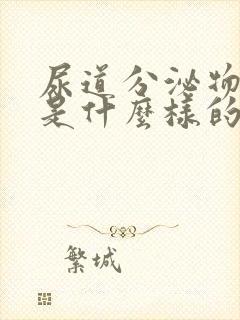 尿道分泌物
是什麼樣的
繁城